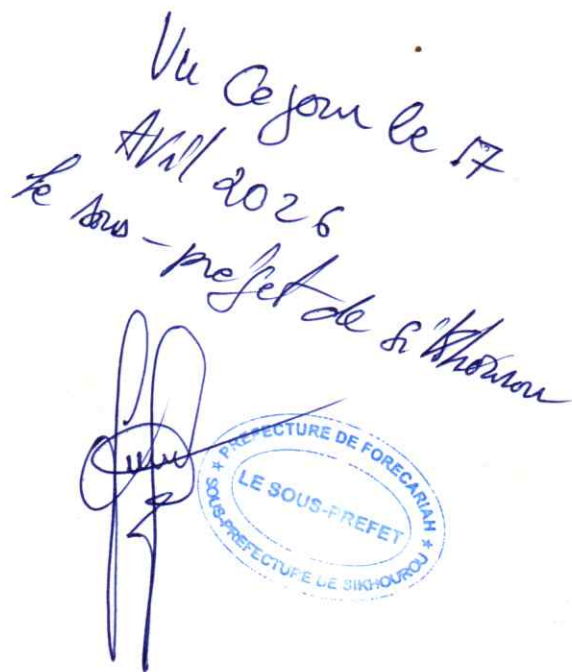 Vu Ce jour le 17
Avril 2026
Le sous-préfet de Sikhourou
★ PREFECTURE DE FORECARIAH ★
LE SOUS-PREFET
SOUS-PREFECTURE DE SIKHOUROU